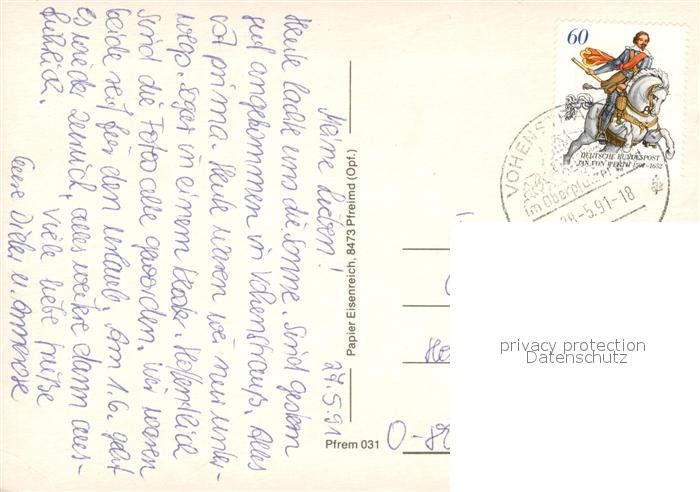 27.5.91
Meine Lieben!
Heute lacht uns die Sonne. Sind gestern
gut angekommen in Vohenstrauß. Alles
ist prima. Heute waren wir nur unter-
wegs. Sogar in einem Hoffentlich
sind die Fotos alle geworden. Wir waren
beide reif für den Urlaub. Am 1.6. geht
es wieder zurück, alles weitere dann aus-
führlich.
Viele liebe Grüße
Eure u. Annerose
Papier Eisenreich, 8473 Pfreimd (Opf.)
Pfrem 031
60
DEUTSCHE BUNDESPOST
JAN VON WERTH 1591-1652
VOHENS
im Oberpfälzer
28.-5.91-18
O-
privacy protection
Datenschutz